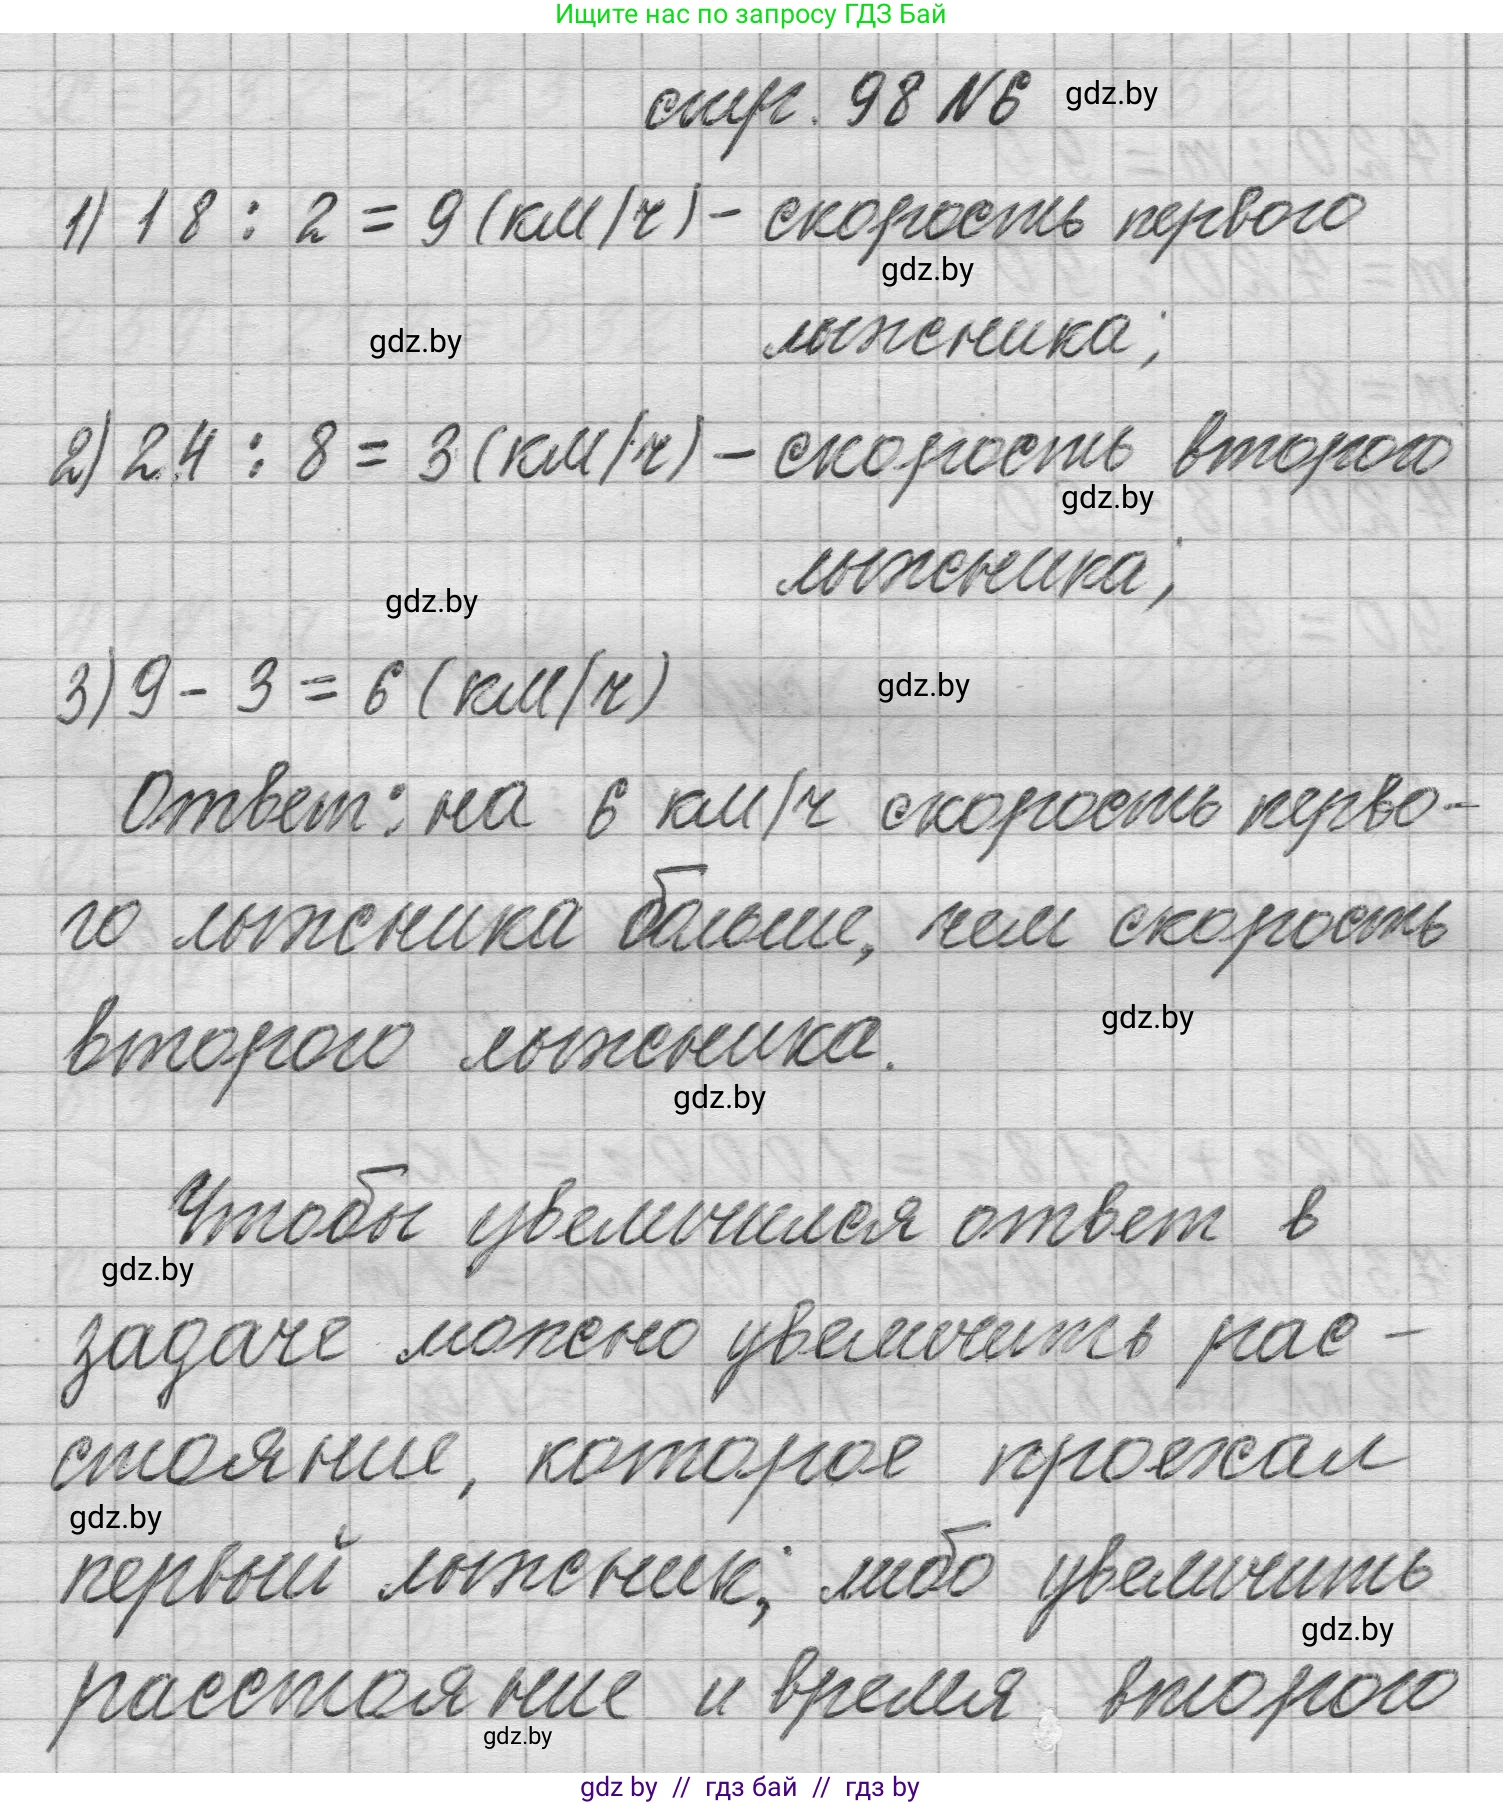 Ищите нас по запросу ГДЗ Бай
стр. 98 №6 gdz.by
1) 18 : 2 = 9 (км/ч) - скорость первого
gdz.by
gdz.by лыжника;
2) 24 : 8 = 3 (км/ч) - скорость второго
gdz.by
gdz.by лыжника;
3) 9 - 3 = 6 (км/ч) gdz.by
Ответ: на 6 км/ч скорость перво-
го лыжника больше, чем скорость
второго лыжника. gdz.by
gdz.by
Чтобы увеличился ответ в
gdz.by
задаче можно увеличить рас-
стояние, которое проехал
gdz.by
первый лыжник; либо увеличить
gdz.by
расстояние и время второго
gdz.by
gdz by // гдз бай // гдз by